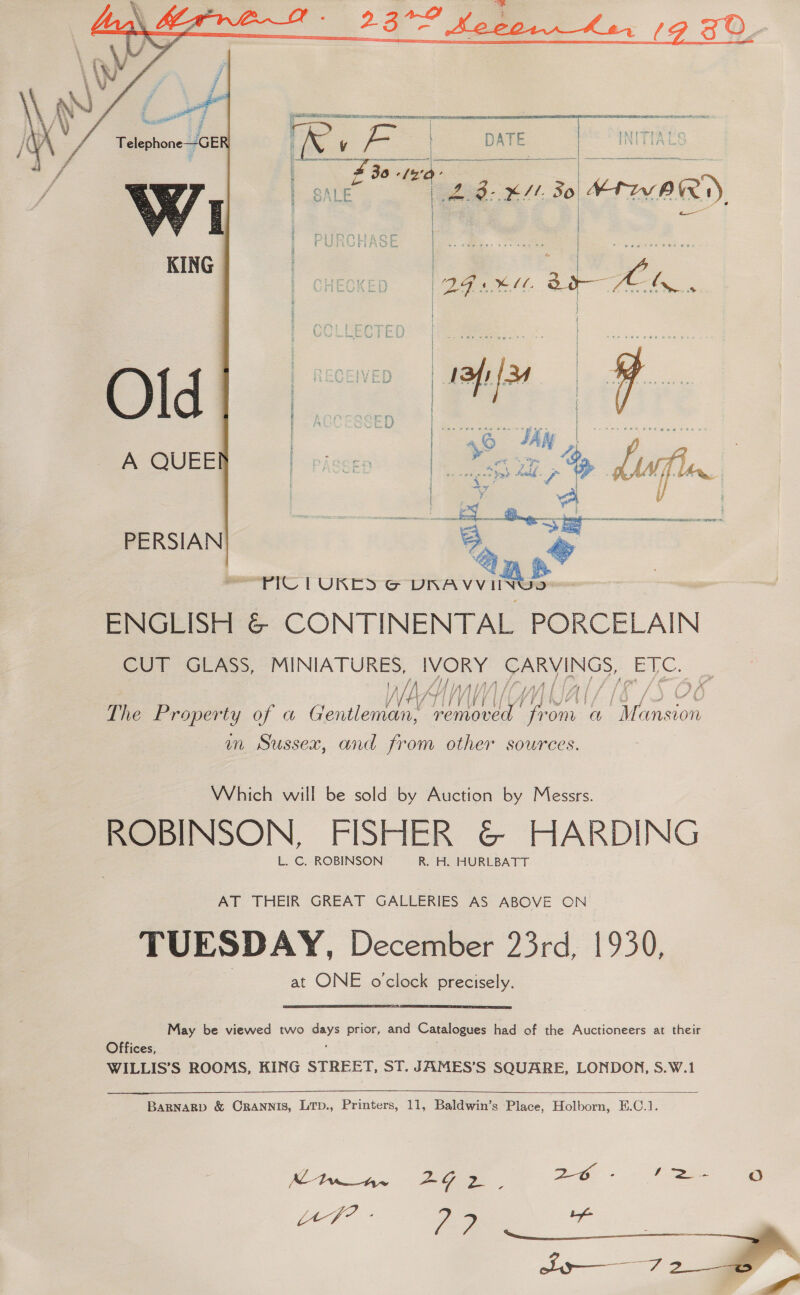 23rd December 1930
Telephone—GER
R v F DATE INITIALS
£ 30 - 12/0 -
SALE 23. XII. 30
PURCHASE
CHECKED 29. XII. 30
COLLECTED
RECEIVED 13/1/31
ACCESSED
PASSED
JAN
WI
KING
Old
A QUEEN
PERSIAN
PICTURES & DRAWINGS
ENGLISH & CONTINENTAL PORCELAIN
CUT GLASS, MINIATURES, IVORY CARVINGS, ETC.
The Property of a Gentleman, removed from a Mansion
in Sussex, and from other sources.
Which will be sold by Auction by Messrs.
ROBINSON, FISHER & HARDING
L. C. ROBINSON R. H. HURLBATT
AT THEIR GREAT GALLERIES AS ABOVE ON
TUESDAY, December 23rd, 1930,
at ONE o'clock precisely.
May be viewed two days prior, and Catalogues had of the Auctioneers at their
Offices,
WILLIS'S ROOMS, KING STREET, ST. JAMES'S SQUARE, LONDON, S.W.1
BARNARD & CRANNIS, LTD., Printers, 11, Baldwin's Place, Holborn, E.C.1.
292. 26 - 12 - 0
77 4
30 12 0